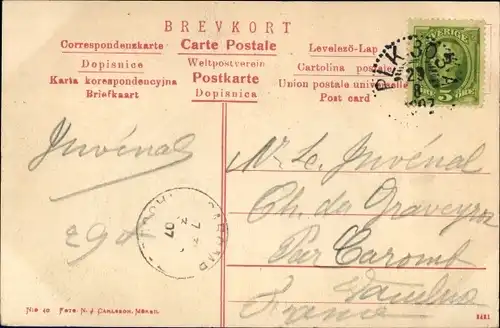 BREVKORT
Correspondenzkarte
Dopisnice
Karta korespondencyjna
Briefkaart
Carte Postale
Weltpostverein
Postkarte
Dopisnica
Levelező-Lap
Cartolina postale
Union postale universelle
Post card
SVERIGE
PLK 30
29
5 ÖRE
Juvénal
290
CAROMB
07
Mr L. Juvénal
Ch. de Graveyron
Par Caromb
Vaucluse
France
N:o 40 Foto. N. J. Carlsson, Mörsil.
5431